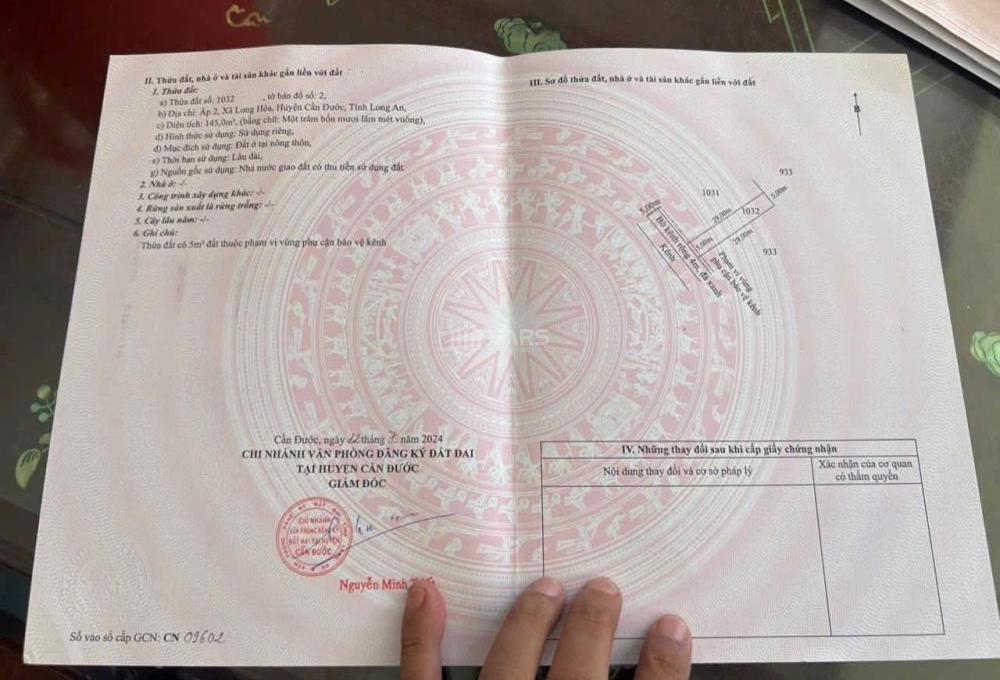 II. Thửa đất, nhà ở và tài sản khác gắn liền với đất
1. Thửa đất:
a) Thửa đất số: 1032 , tờ bản đồ số: 2,
b) Địa chỉ: Ấp 2, Xã Long Hòa, Huyện Cần Đước, Tỉnh Long An,
c) Diện tích: 145,0m², (bằng chữ: Một trăm bốn mươi lăm mét vuông),
d) Hình thức sử dụng: Sử dụng riêng,
đ) Mục đích sử dụng: Đất ở tại nông thôn,
e) Thời hạn sử dụng: Lâu dài,
g) Nguồn gốc sử dụng: Nhà nước giao đất có thu tiền sử dụng đất.
2. Nhà ở: -/-
3. Công trình xây dựng khác: -/-
4. Rừng sản xuất là rừng trồng: -/-
5. Cây lâu năm: -/-
6. Ghi chú:
Thửa đất có 5m² đất thuộc phạm vi vùng phụ cận bảo vệ kênh
Cần Đước, ngày 22 tháng 7 năm 2024
CHI NHÁNH VĂN PHÒNG ĐĂNG KÝ ĐẤT ĐAI
TẠI HUYỆN CẦN ĐƯỚC
GIÁM ĐỐC
CHI NHÁNH
VĂN PHÒNG ĐĂNG KÝ
ĐẤT ĐAI TẠI HUYỆN
CẦN ĐƯỚC
Nguyễn Minh
Số vào sổ cấp GCN: CN 09602
III. Sơ đồ thửa đất, nhà ở và tài sản khác gắn liền với đất
B
933
1031
5.00m
5.00m
29.00m
1032
29.00m
5.00m
933
Bờ kênh rộng 4m, đá xanh
Kênh
Phạm vi vùng
phụ cận bảo vệ kênh
IV. Những thay đổi sau khi cấp giấy chứng nhận
Nội dung thay đổi và cơ sở pháp lý
Xác nhận của cơ quan
có thẩm quyền